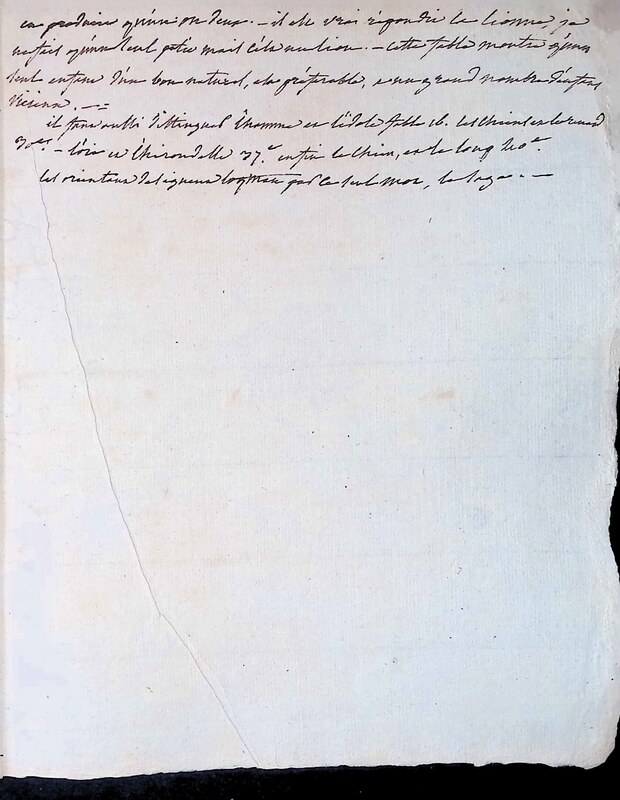 en produire qu'un ou deux. – il est vrai répondit la lionne, je
ne fais qu'un seul petit mais c'est un lion. – cette fable montre qu'un
seul enfant d'un bon naturel, est préférable, a un grand nombre d'enfans
vicieux. –=
il faut aussi distinguer l'homme et l'idole fable 16. les chiens et le renard
– l'oie et l'hirondelle 37.e enfin le chien, et le loup
les orientaux designent loqman par ce seul mot, le sage. –